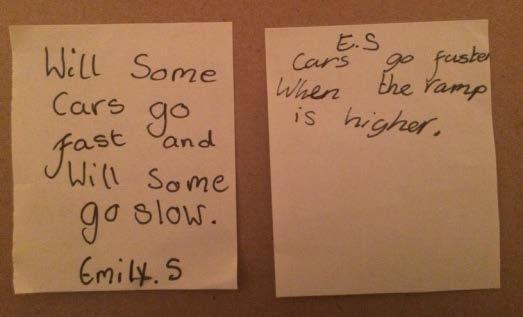 Will Some
Cars go
fast and
Will Some
go slow.
Emily. S
E.S
Cars go faster
When the ramp
is higher.